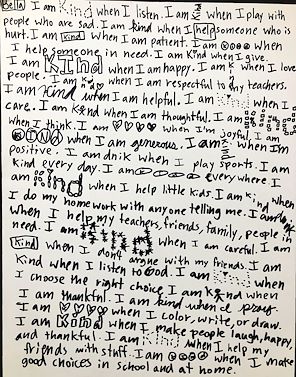 Bella I am Kind when I listen. I am kind when I play with
people who are sad. I am kind when I help someone who is
hurt. I am kind when I am patient. I am when
I help someone in need. I am Kind when I give.
I am Kind when I am happy. I am when I love
people. I am kind when I am respectful to my teachers.
I am kind when I am helpful. I am kind when I
care. I am kind when I am thoughtful. I am
when I think. I am when I'm joyful. I am
KIND when I am generous. I am when I'm
positive. I am dnik when I play sports. I am
kind every day. I am everywhere I
am kind when I help little kids. I am kind when
I do my homework with anyone telling me. I am kind
when I help my teachers, friends, family, people in
need. I am kind when I am careful. I am
Kind when I don't argue with my friends. I am
kind when I listen to God. I am kind when
I choose the right choice. I am kind when
I am thankful. I am kind when I pray.
I am when I color, write, or draw.
I am Kind when I make people laugh, happy,
and thankful. I am kind when I help my
friends with stuff. I am when I make
good choices in school and at home.